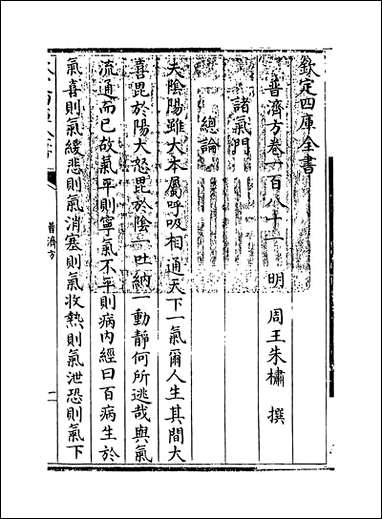 欽定四庫全書
普濟方卷一百八十一　明　周王朱橚　撰
諸氣門
總論
夫陰陽雖大本屬呼吸相通天下一氣爾人生其間大
喜毘於陽大怒毘於陰一吐納一動靜何所逃哉與氣
流通而已故氣平則寧氣不平則病内經曰百病生於
氣喜則氣緩悲則氣消寒則氣收熱則氣泄恐則氣下
普濟方